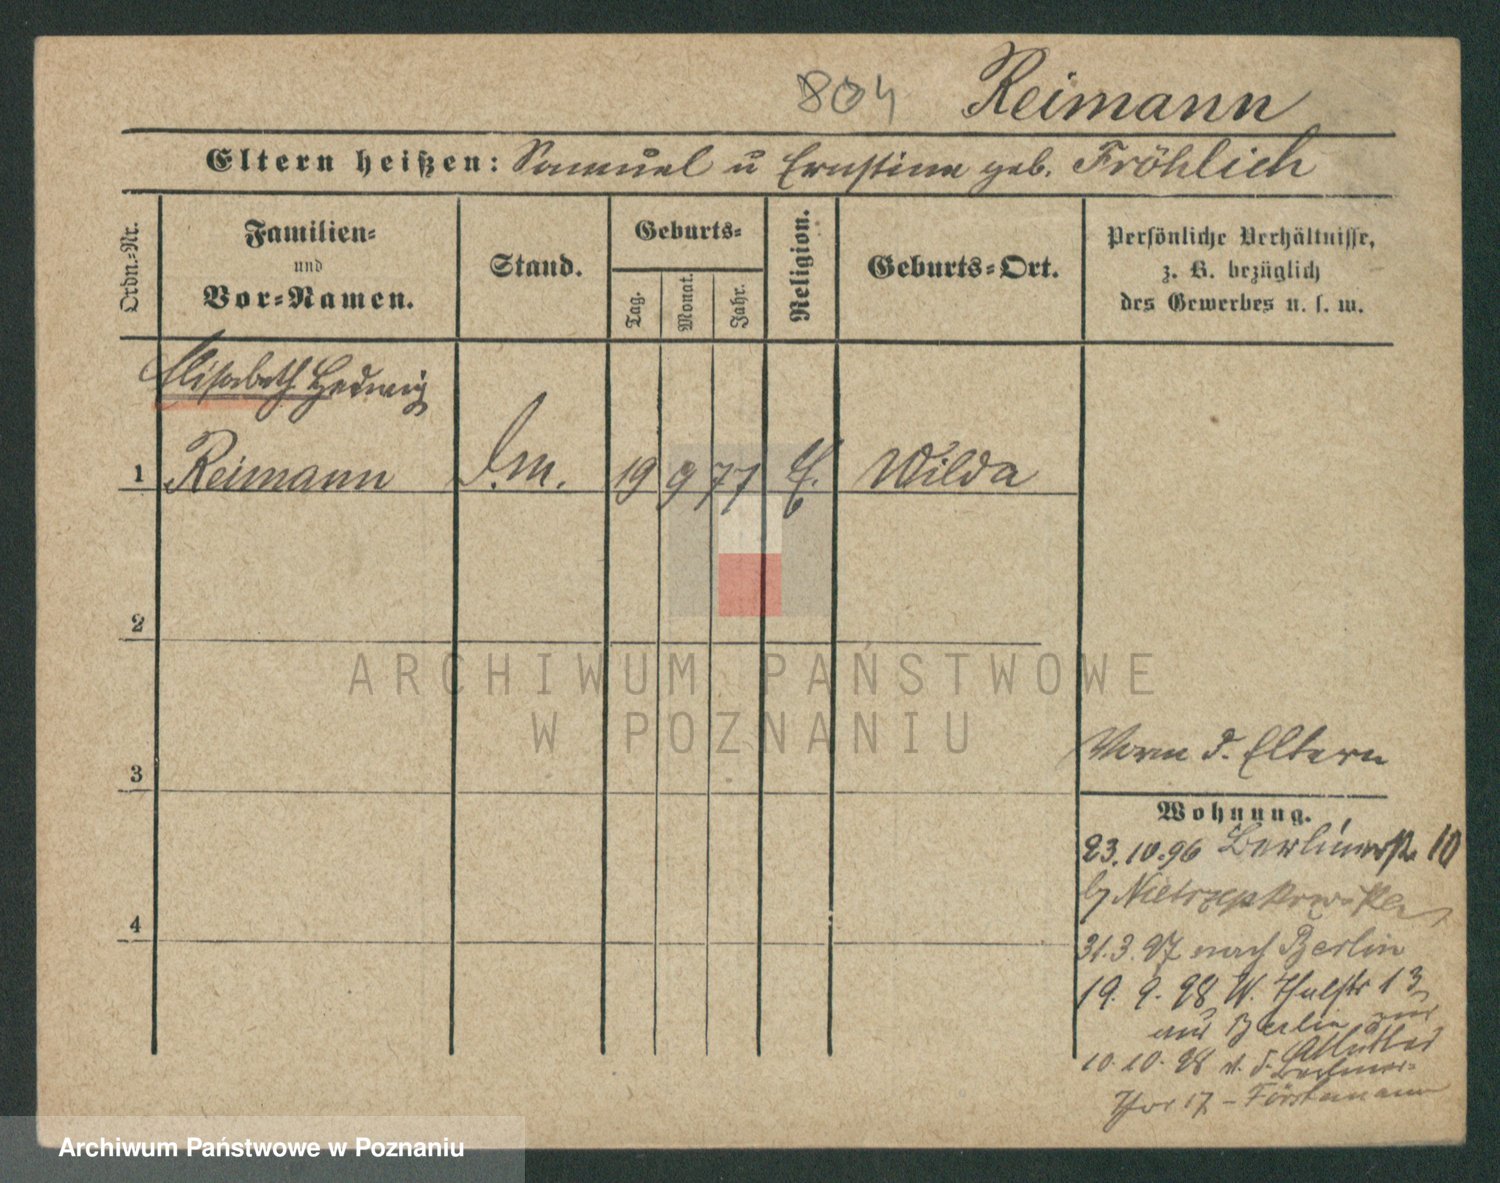 804 Reimann
Eltern heißen: Samuel u Ernstine geb. Fröhlich
Ordn.-Nr.
Familien-
und
Vor-Namen.
Stand.
Geburts-
Tag.
Monat.
Jahr.
Religion.
Geburts-Ort.
Persönliche Verhältnisse,
z. B. bezüglich
des Gewerbes u. s. w.
Elisabeth Hedwig
1 Reimann 19 9 77 Wilda
2
3
4
ARCHIWUM PAŃSTWOWE
W POZNANIU
d. Eltern
Wohnung.
23.10.96 Berlinerstr. 10
31.3.97 nach Berlin
19. 9. 98 W. 13
aus Berlin zur
Mutter
10.10.98 v. d. Berliner-
Thor 17 - Förstemann
Archiwum Państwowe w Poznaniu